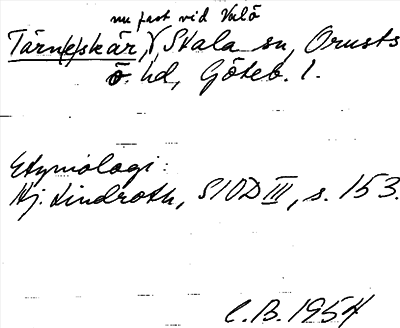 nu fast vid Valö
Tärn(e)skär, Stala sn, Orusts
ö. hd, Göteb. l.
Etymologi:
Hj. Lindroth, SIOD III, s. 153.
C.B. 1954